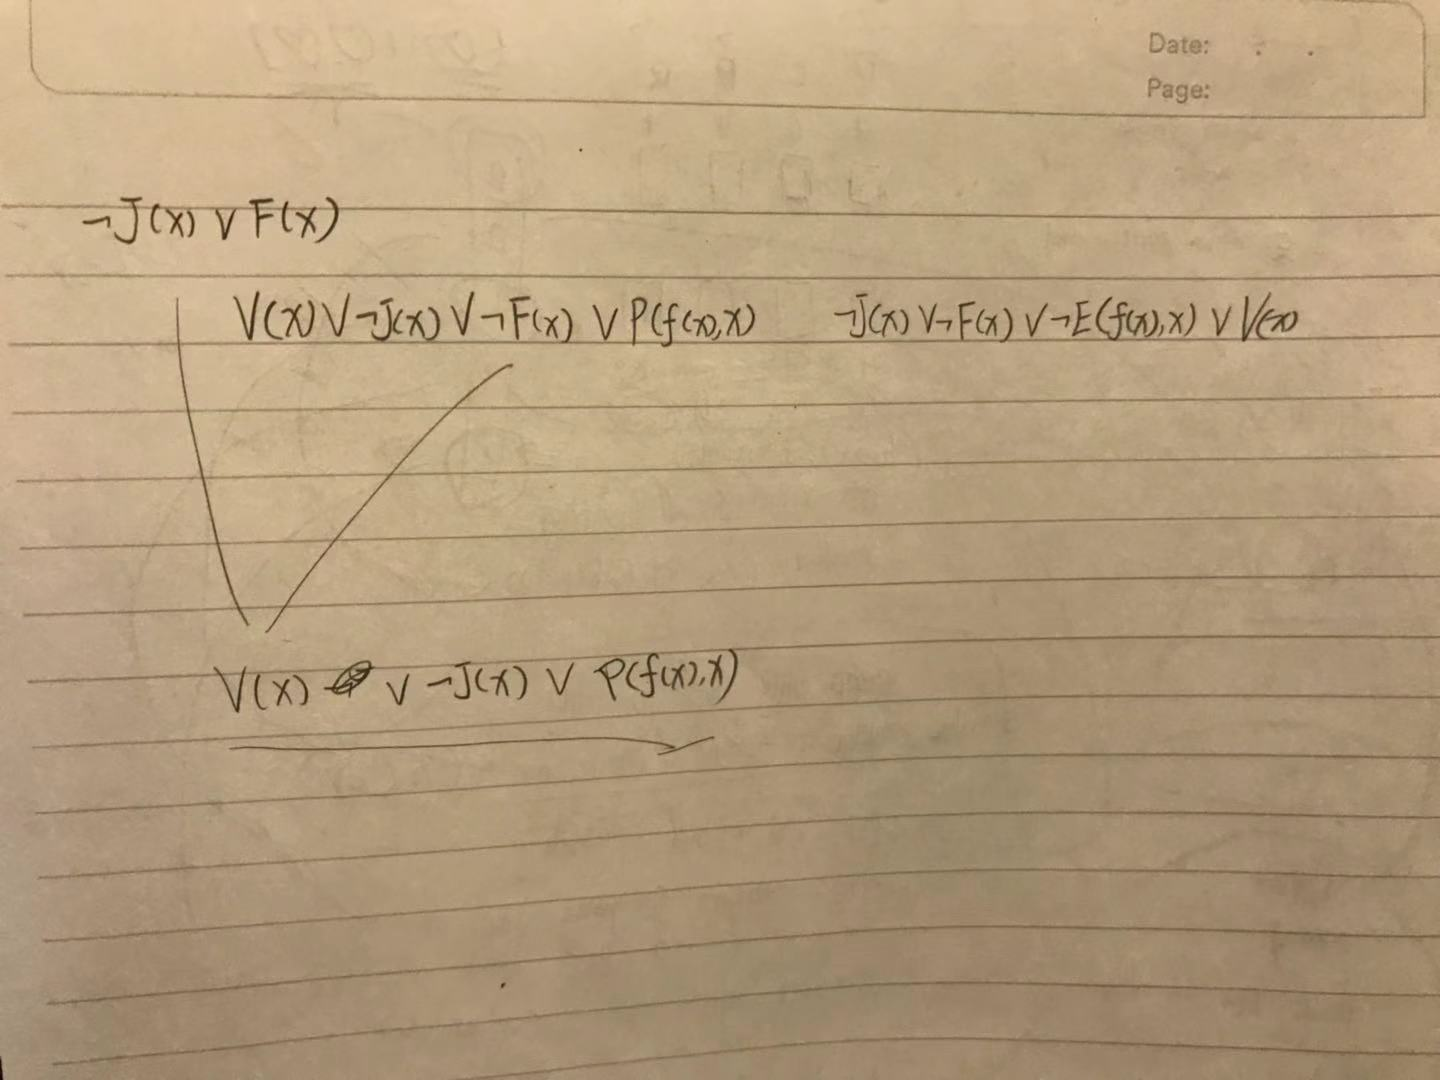 Date: : .
Page:
¬J(x) ∨ F(x)
V(x) ∨ ¬J(x) ∨ ¬F(x) ∨ P(f(x),x) ¬J(x) ∨ ¬F(x) ∨ ¬E(f(x),x) ∨ V(x)
V(x) ∨ ¬J(x) ∨ P(f(x),x)